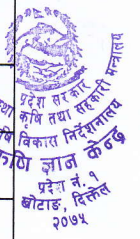 प्रदेश सरकार
कृषि तथा सहकारी मन्त्रालय
कृषि विकास निर्देशनालय
कृषि ज्ञान केन्द्र
प्रदेश नं. १
खोटाङ, दिक्तेल
२०७५